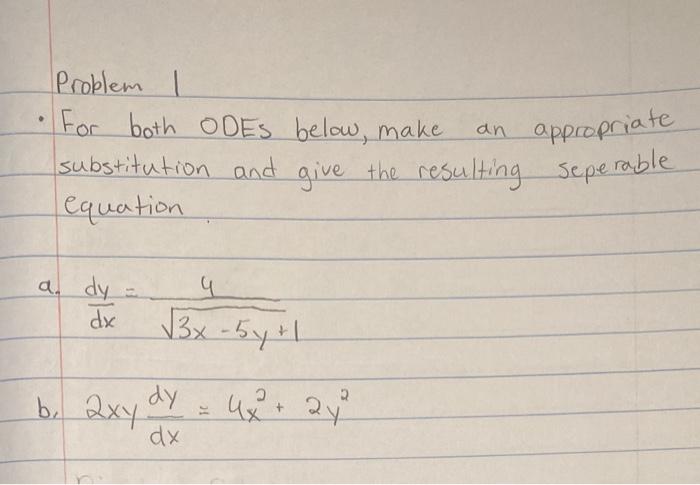 Problem 1
• For both ODEs below, make an appropriate
substitution and give the resulting seperable
equation.
a. dy/dx = 4/√(3x - 5y + 1)
b. 2xy dy/dx = 4x² + 2y²